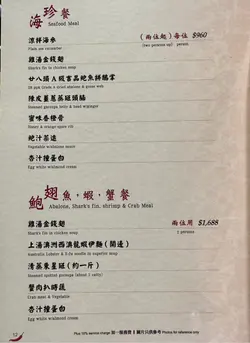 海珍餐
Seafood Meal
涼拌海參
(兩位起) 每位 $960
Plain sea cucumber
(two persons up) person
雞湯金錢翅
Shark's fin in chicken soup
廿八頭A級吉品鮑魚拼鵝掌
28 pax Grade A dried abalone & goose web
陳皮薑蔥蒸龍頭鱈
蜜味香橙骨
Honey & orange spare rib
鮑汁菜遠
Vegetable w/abalone sauce
杏汁燉蛋白
Egg white w/almond cream
鮑翅魚,蝦,蟹餐
Abalone, Shark's fin, shrimp & Crab Meal
雞湯金錢翅
兩位用 $1,688
Shark's fin in chicken soup
2 persons
上湯澳洲西澳龍蝦伊麵(開邊)
Australia lobster & E-fu noodle in superior soup
清蒸東星斑(約一斤)
Steamed spotted garoupa (about 1 catty)
蟹肉扒時蔬
Crab meat & Vegetable
杏汁燉蛋白
Egg white w/almond cream
12
Plus 10% service charge 加一服務費 ‖ 圖片只供參考 Photos for reference only